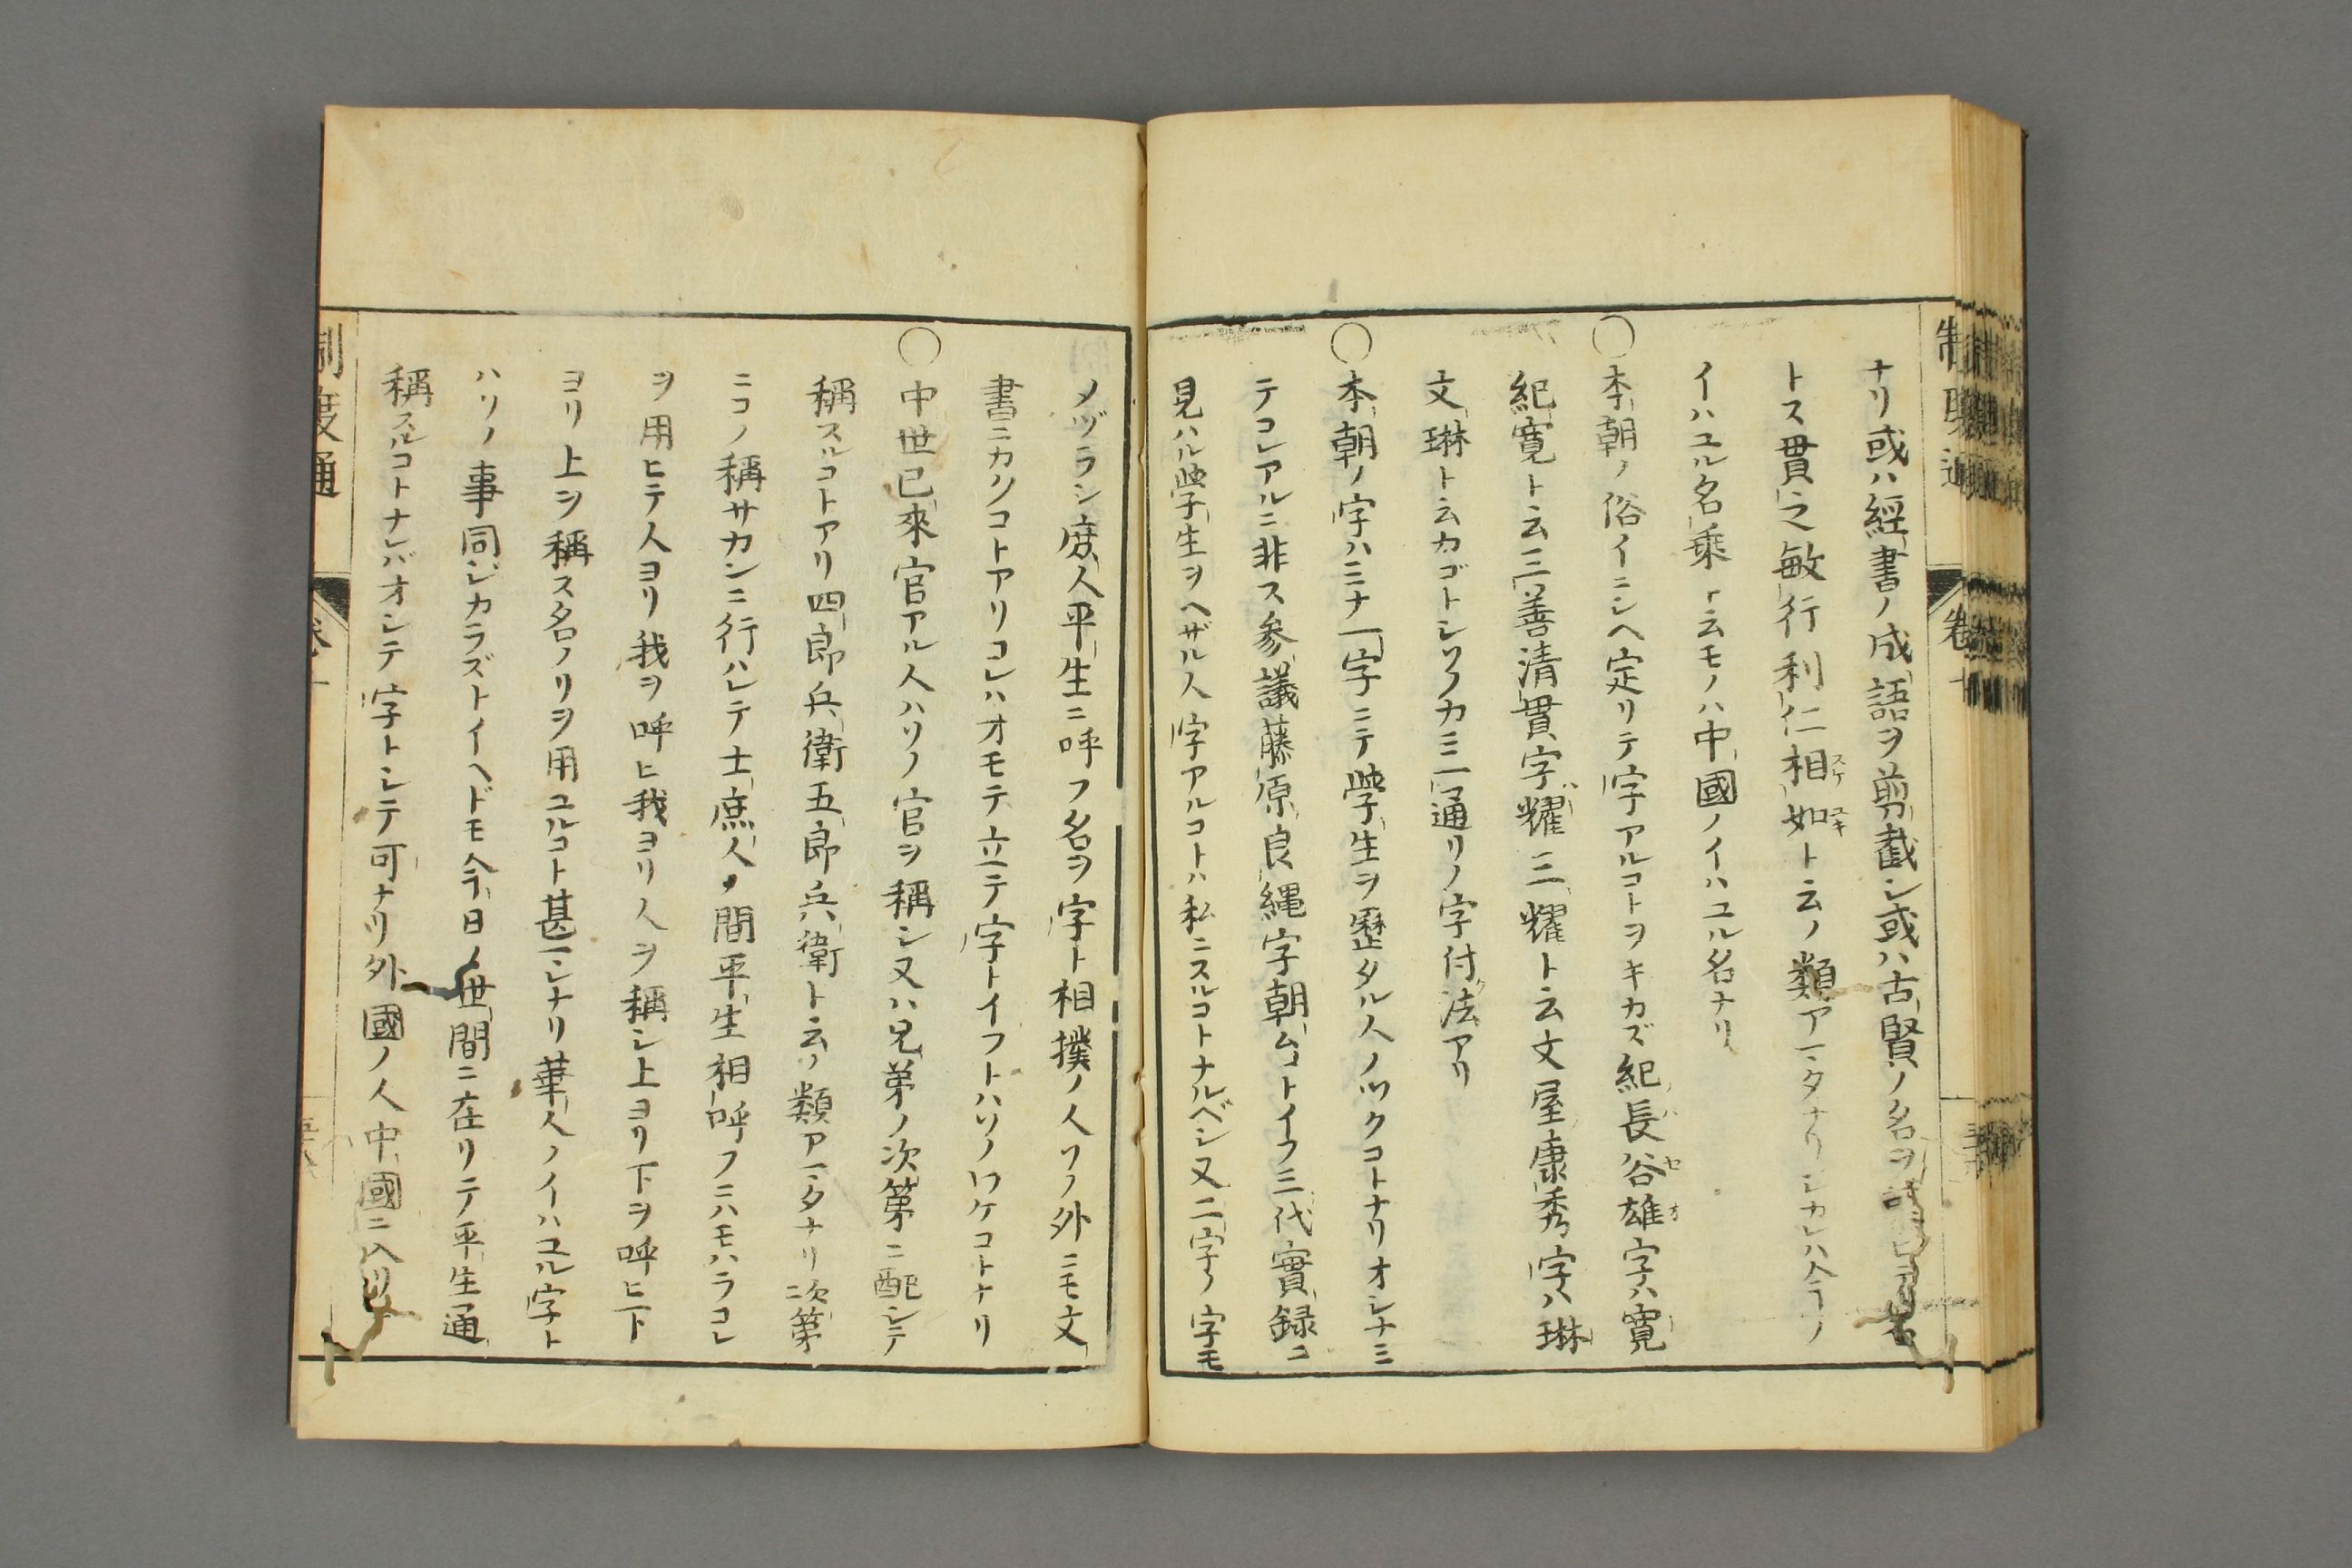 ナリ或ハ經書ノ成語ヲ剪截シ或ハ古賢ノ名ヲ
トス貫之敏行利仁相如ト云ノ類アマタナリシカレハ今ノ
スケ
ユキ
イハユル名乗ト云モノハ中國ノイハユル名ナリ
〇本朝ノ俗イニシヘ定リテ字アルコトヲキカズ紀長谷雄字ハ寛
ハセヲ
紀寛ト云三善清貫字ハ耀三耀ト云文屋康秀字ハ琳
文琳ト云カゴトシソノカミ一通リノ字付ノ法アリ
〇本朝ノ字ハミナ一字ニテ學生ヲ歷タル人ノツクコトナリオシナミ
テコレアルニ非ス參議藤原良縄字朝台トイフ三代實録ニ
見ハル學生ヲヘザル人字アルコトハ私ニスルコトナルベシ又二字ノ字モ
メヅラシ庶人平生ニ呼フ名ヲ字ト相撲ノ人ソノ外ニモ文
書ニカクコトアリコレハオモテ立テ字トイフトハソノワケコトナリ
〇中世已來官アル人ハソノ官ヲ稱シ又ハ兄弟ノ次第ニ配シテ
稱スルコトアリ四郎兵衛五郎兵衛ト云ノ類アマタナリ次第
ニコノ稱サカンニ行ハレテ士庶人ノ間平生相呼フニハモハラコレ
ヲ用ヒテ人ヨリ我ヲ呼ヒ我ヨリ人ヲ稱シ上ヨリ下ヲ呼ヒ下
ヨリ上ヲ稱ス名ノリヲ用ユルコト甚マレナリ華人ノイハユル字ト
ハソノ事同ジカラズトイヘドモ今日ノ世間ニ在リテ平生通
稱スルコトナレバオシテ字トシテ可ナリ外國ノ人中國ニ入リテ
制度通